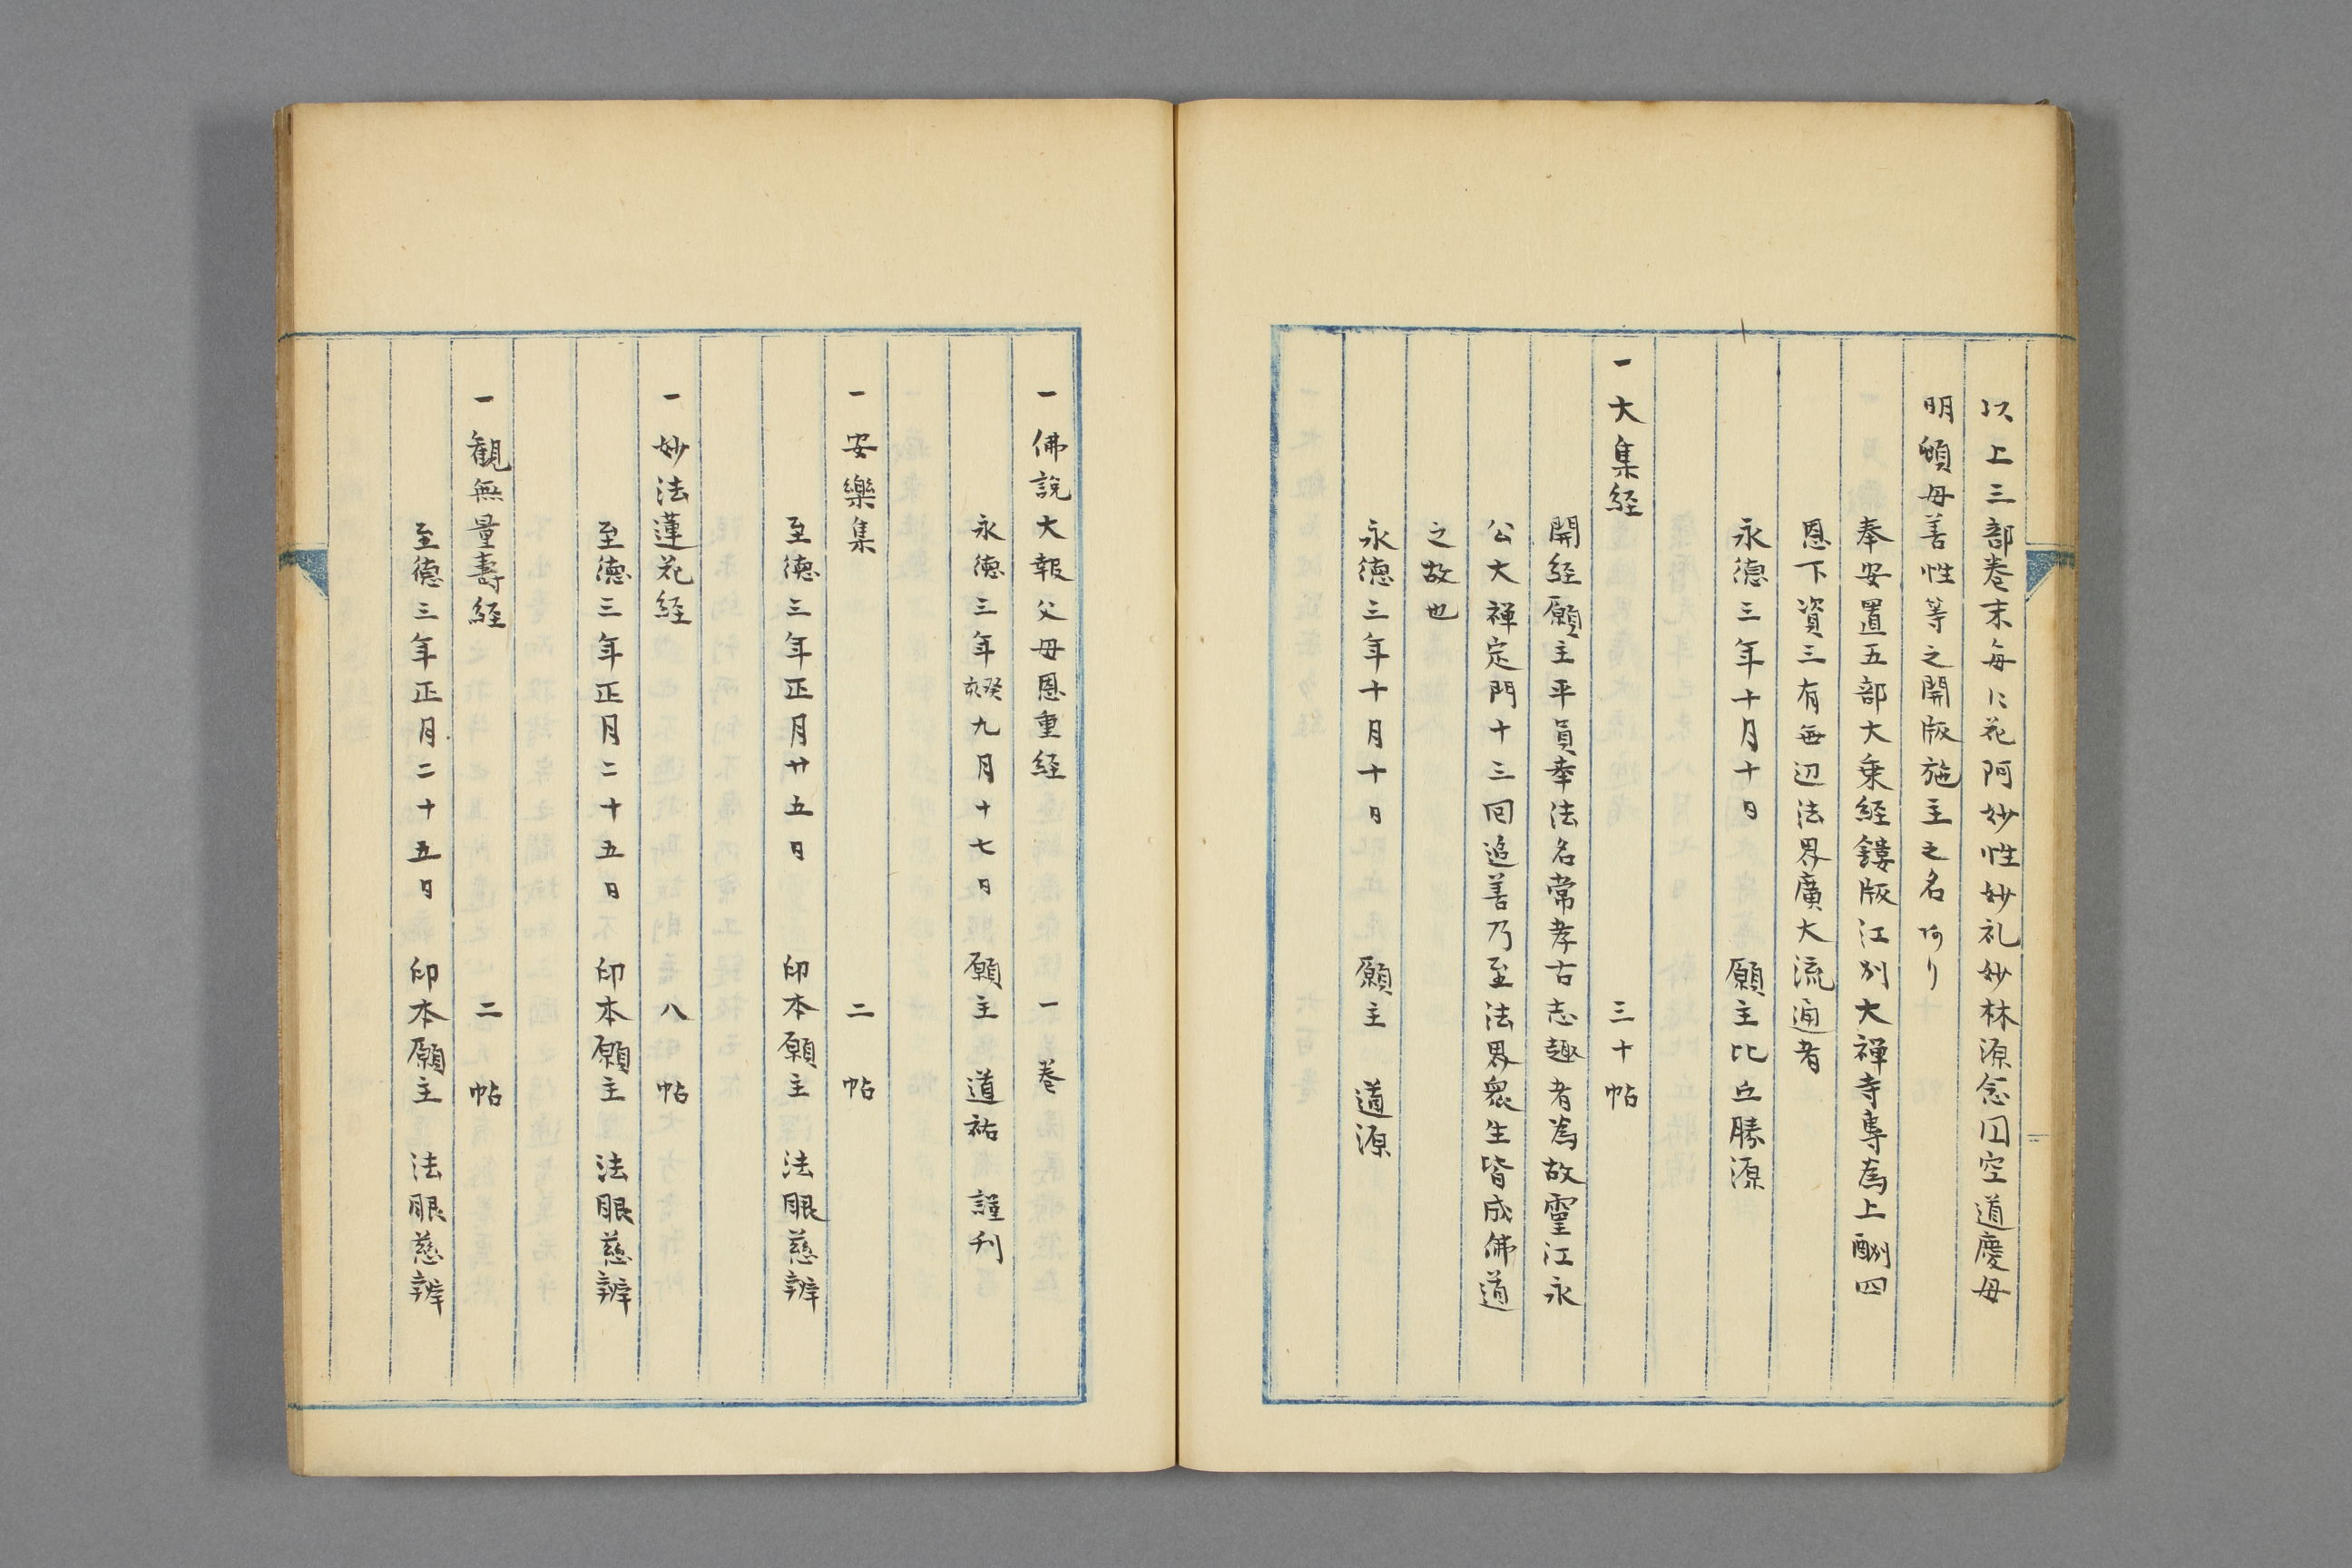 以上三部巻末毎ニ花阿妙性妙礼妙林源念因空道慶母
明頓母善性等之開版施主之名アリ
奉安置五部大乗経鏤版江州大禅寺専為上酬四
恩下資三有無辺法界廣大流通者
永徳三年十月十日　願主比丘勝源
一大集経　三十帖
開経願主平員奉法名常孝古志趣者為故霊江永
公大禅定門十三回追善乃至法界衆生皆成佛道
之故也
永徳三年十月十日　願主　道源
一佛説大報父母恩重経　一巻
永徳三年癸亥九月十七日　願主　道祐　謹刊
一安樂集　二帖
至徳三年正月廿五日　印本願主　法眼慈辨
一妙法蓮花経　八帖
至徳三年正月二十五日　印本願主　法眼慈辨
一観無量壽経　二帖
至徳三年正月二十五日　印本願主　法眼慈辨